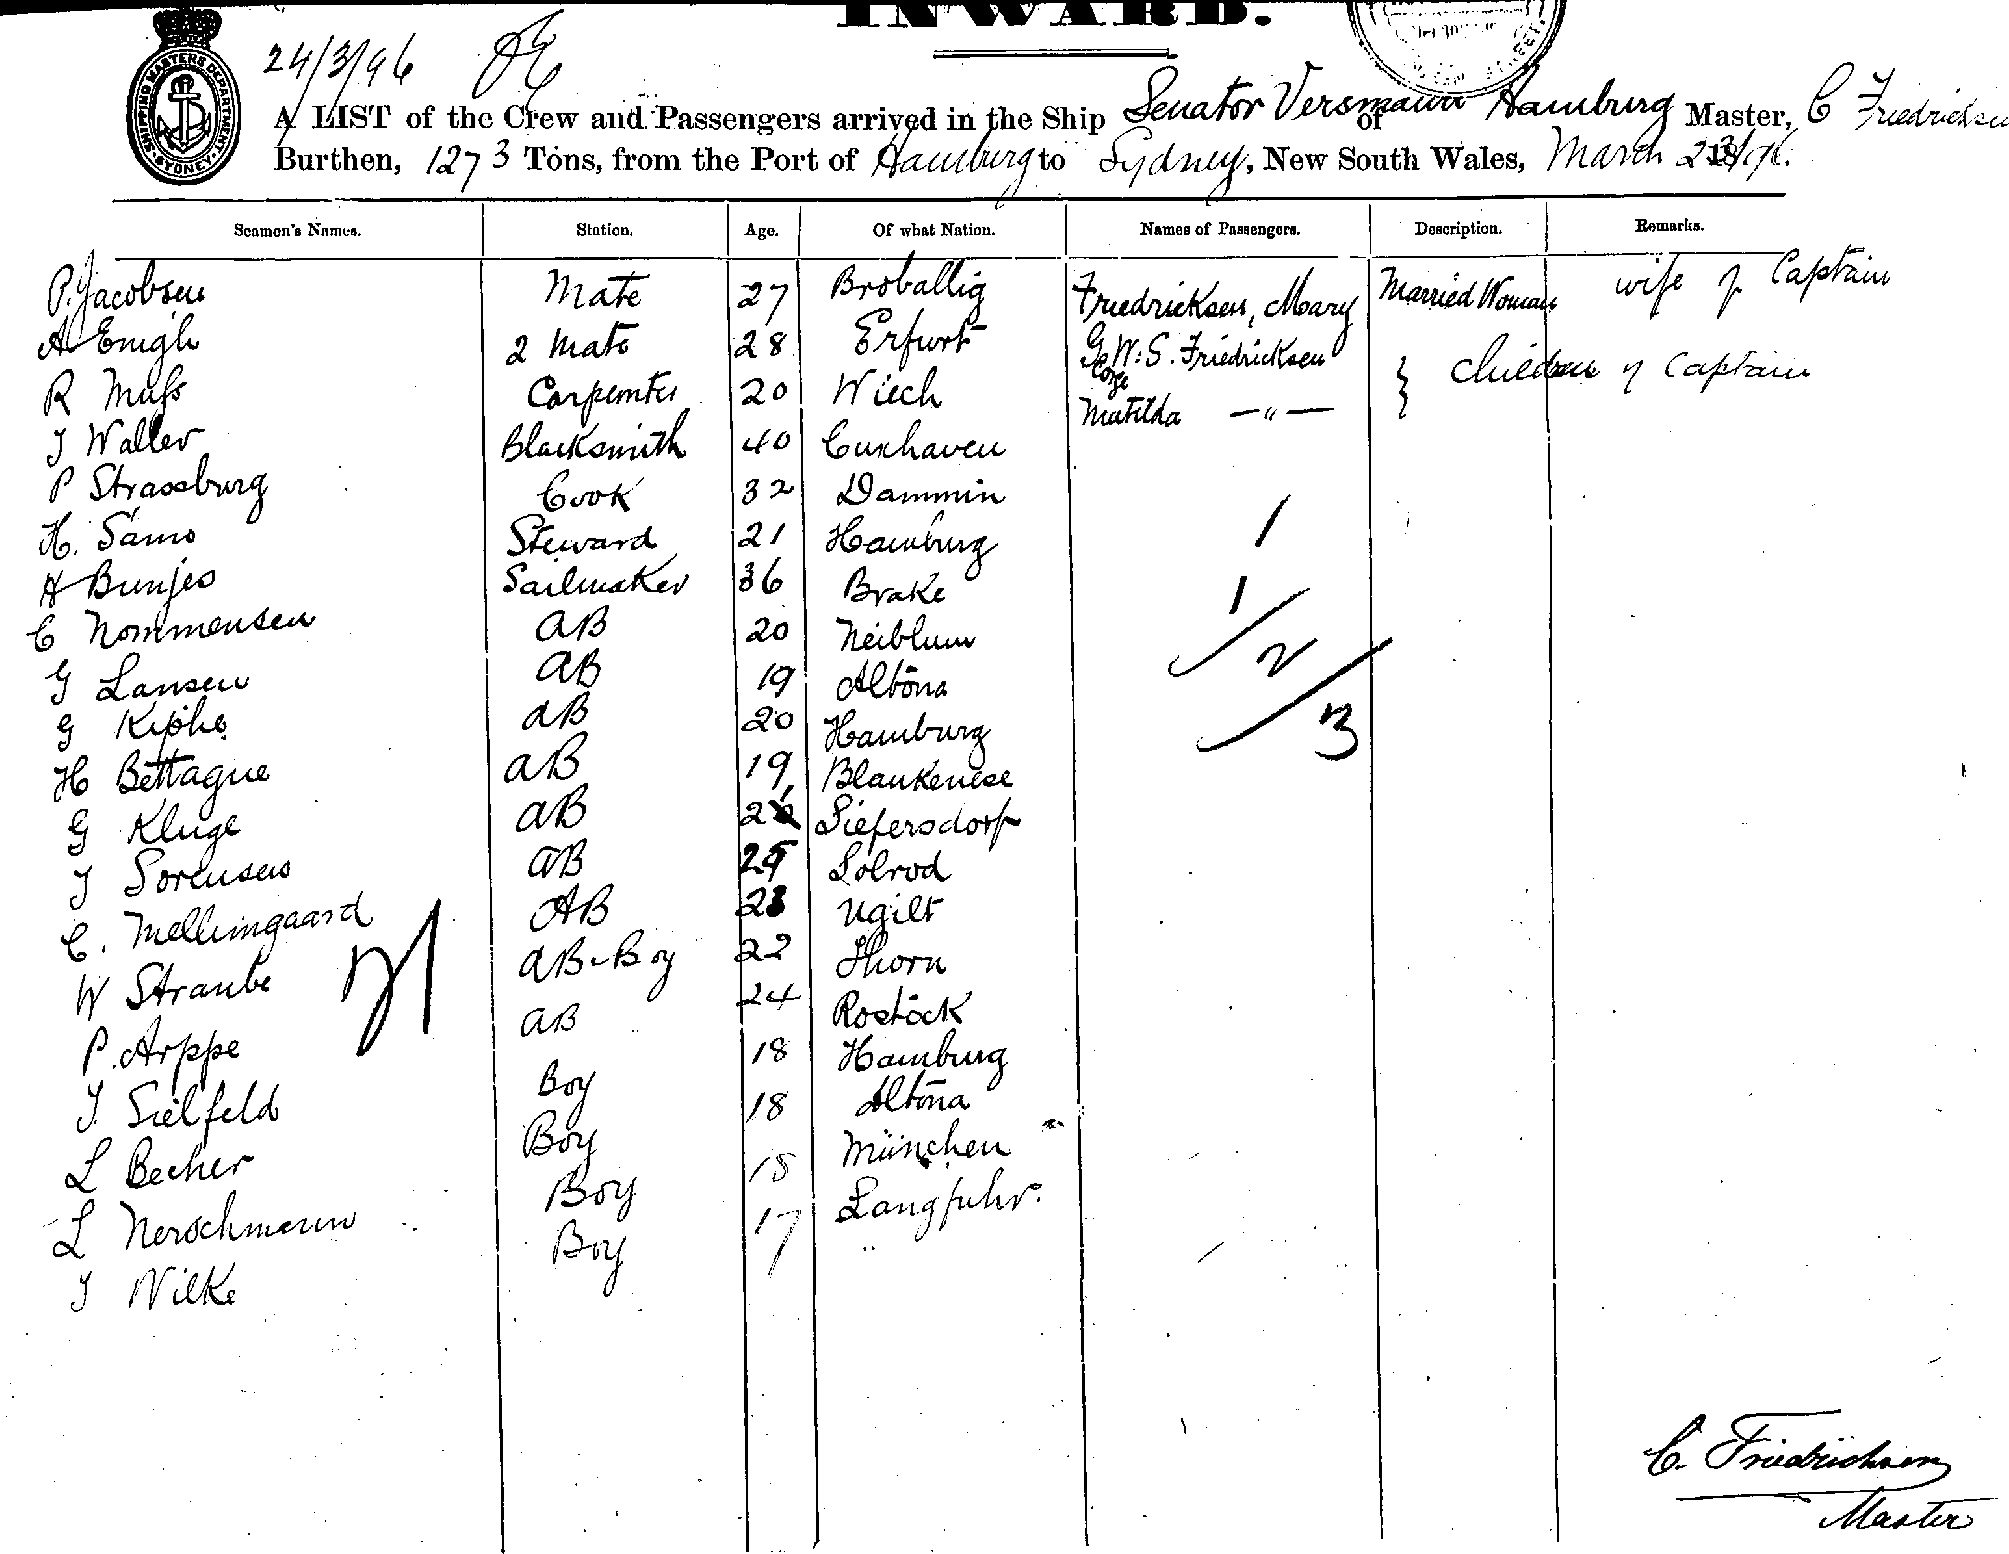 INWARD.
24/3/96
SHIPPING MASTERS DEPARTMENT SYDNEY
A LIST of the Crew and Passengers arrived in the Ship Senator Versmann of Hamburg Master, C Friedrichsen
Burthen, 1273 Tons, from the Port of Hamburg to Sydney, New South Wales, March 23/96.
Seamen's Names. Station. Age. Of what Nation. Names of Passengers. Description. Remarks.
P. Jacobsen Mate 27 Broballig Friedricksen, Mary Married Woman wife of Captain
A Emigh 2 Mate 28 Erfurt George W. S. Friedricksen } children of Captain
R Muss Carpenter 20 Wiech Matilda —"—
J Waller Blacksmith 40 Cuxhaven
P Strassburg Cook 32 Dammin
H. Samo Steward 21 Hamburg 1
H Bunjes Sailmaker 36 Brake 1
C Nommensen AB 20 Neiblum 2
G Lansen AB 19 Altona
G Kiphe AB 20 Hamburg 3
H Bettague AB 19 Blankenese
G Kluge AB Siefersdorf
J Sorensen AB Lolrod
C. Mellimgaard AB Ugilt
W Straube AB-Boy 22 Thorn
P. Arppe AB 24 Rostock
J. Sielfeld Boy 18 Hamburg
L Becher Boy 18 Altona
L Nerschmann Boy 18 München
J Wilke Boy 17 Langfuhr.
21
C. Friedrichsen
Master